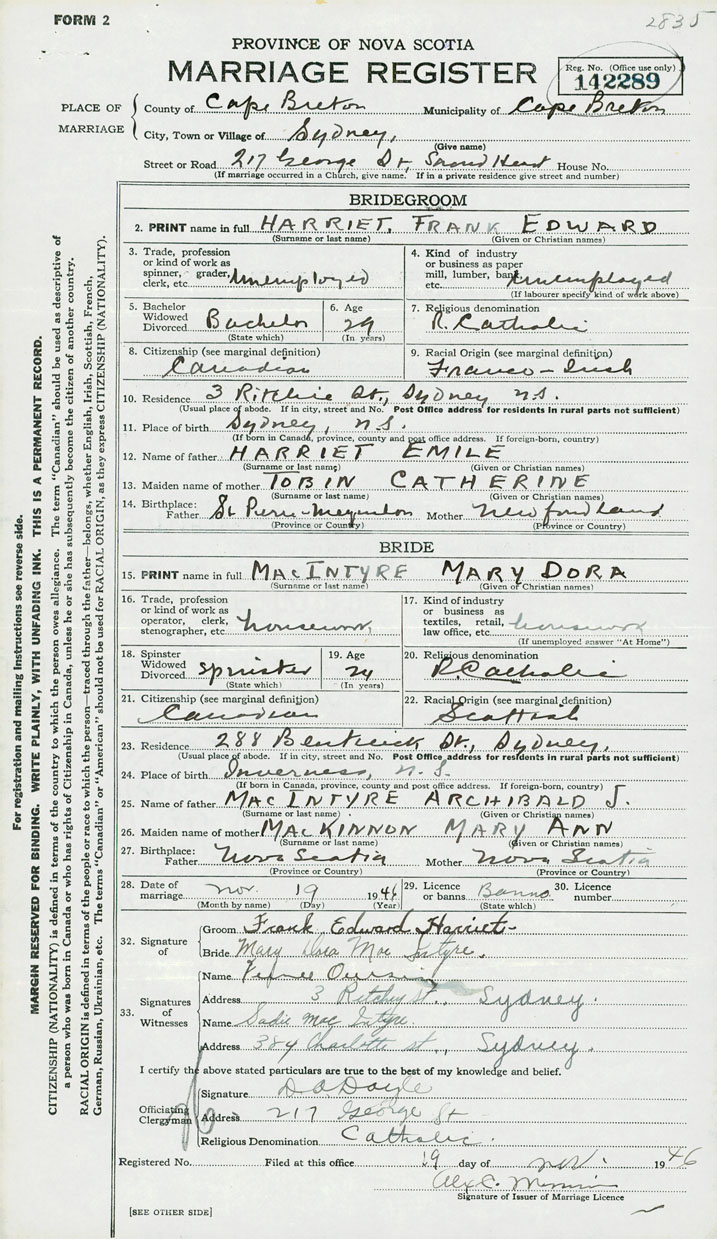 FORM 2
2835
PROVINCE OF NOVA SCOTIA
MARRIAGE REGISTER
Reg. No. (Office use only)
142289
PLACE OF MARRIAGE
County of Cape Breton Municipality of Cape Breton
City, Town or Village of Sydney,
(Give name)
Street or Road 217 George St, Sacred Heart House No.
(If marriage occurred in a Church, give name. If in a private residence give street and number)
BRIDEGROOM
2. PRINT name in full HARRIET, FRANK EDWARD
(Surname or last name) (Given or Christian names)
3. Trade, profession
or kind of work as
spinner, grader,
clerk, etc. Unemployed
4. Kind of industry
or business as paper
mill, lumber, bank,
etc. Unemployed
(If labourer specify kind of work above)
5. Bachelor
Widowed
Divorced Bachelor
(State which)
6. Age
29
(In years)
7. Religious denomination
R. Catholic
8. Citizenship (see marginal definition)
Canadian
9. Racial Origin (see marginal definition)
Franco-Irish
10. Residence 3 Ritchie St., Sydney N.S.
(Usual place of abode. If in city, street and No. Post Office address for residents in rural parts not sufficient)
11. Place of birth Sydney, N.S.
(If born in Canada, province, county and post office address. If foreign-born, country)
12. Name of father HARRIET EMILE
(Surname or last name) (Given or Christian names)
13. Maiden name of mother TOBIN CATHERINE
(Surname or last name) (Given or Christian names)
14. Birthplace:
Father St Pierre-Mequelon Mother Newfoundland
(Province or Country) (Province or Country)
BRIDE
15. PRINT name in full MACINTYRE MARY DORA
(Surname or last name) (Given or Christian names)
16. Trade, profession
or kind of work as
operator, clerk,
stenographer, etc. housework
17. Kind of industry
or business as
textiles, retail,
law office, etc. housework
(If unemployed answer "At Home")
18. Spinster
Widowed
Divorced Spinster
(State which)
19. Age
24
(In years)
20. Religious denomination
R. Catholic
21. Citizenship (see marginal definition)
Canadian
22. Racial Origin (see marginal definition)
Scottish
23. Residence 288 Bentinick St., Sydney,
(Usual place of abode. If in city, street and No. Post Office address for residents in rural parts not sufficient)
24. Place of birth Inverness, N.S.
(If born in Canada, province, county and post office address. If foreign-born, country)
25. Name of father MACINTYRE ARCHIBALD J.
(Surname or last name) (Given or Christian names)
26. Maiden name of mother MACKINNON MARY ANN
(Surname or last name) (Given or Christian names)
27. Birthplace:
Father Nova Scotia Mother Nova Scotia
(Province or Country) (Province or Country)
28. Date of
marriage Nov. 19 1946
(Month by name) (Day) (Year)
29. Licence
or banns Banns
(State which)
30. Licence
number
32. Signature
of
Groom Frank Edward Harriet
Bride Mary Dora Mac Intyre.
33. Signatures
of
Witnesses
Name
Address 3 Ritchy St., Sydney.
Name Sadie Mac Intyre.
Address 384 Charlotte St., Sydney.
I certify the above stated particulars are true to the best of my knowledge and belief.
Officiating
Clergyman
Signature D. A. Doyle
Address 217 George St
Religious Denomination Catholic.
Registered No. Filed at this office 19 day of Nov. 1946
Alex C.
Signature of Issuer of Marriage Licence
[SEE OTHER SIDE]
For registration and mailing Instructions see reverse side.
MARGIN RESERVED FOR BINDING. WRITE PLAINLY, WITH UNFADING INK. THIS IS A PERMANENT RECORD.
CITIZENSHIP (NATIONALITY) is defined in terms of the country to which the person owes allegiance. The term "Canadian" should be used as descriptive of
a person who was born in Canada or who has rights of Citizenship in Canada, unless he or she has subsequently become the citizen of another country.
RACIAL ORIGIN is defined in terms of the people or race to which the person—traced through the father—belongs, whether English, Irish, Scottish, French,
German, Russian, Ukrainian, etc. The terms "Canadian" or "American" should not be used for RACIAL ORIGIN, as they express CITIZENSHIP (NATIONALITY).